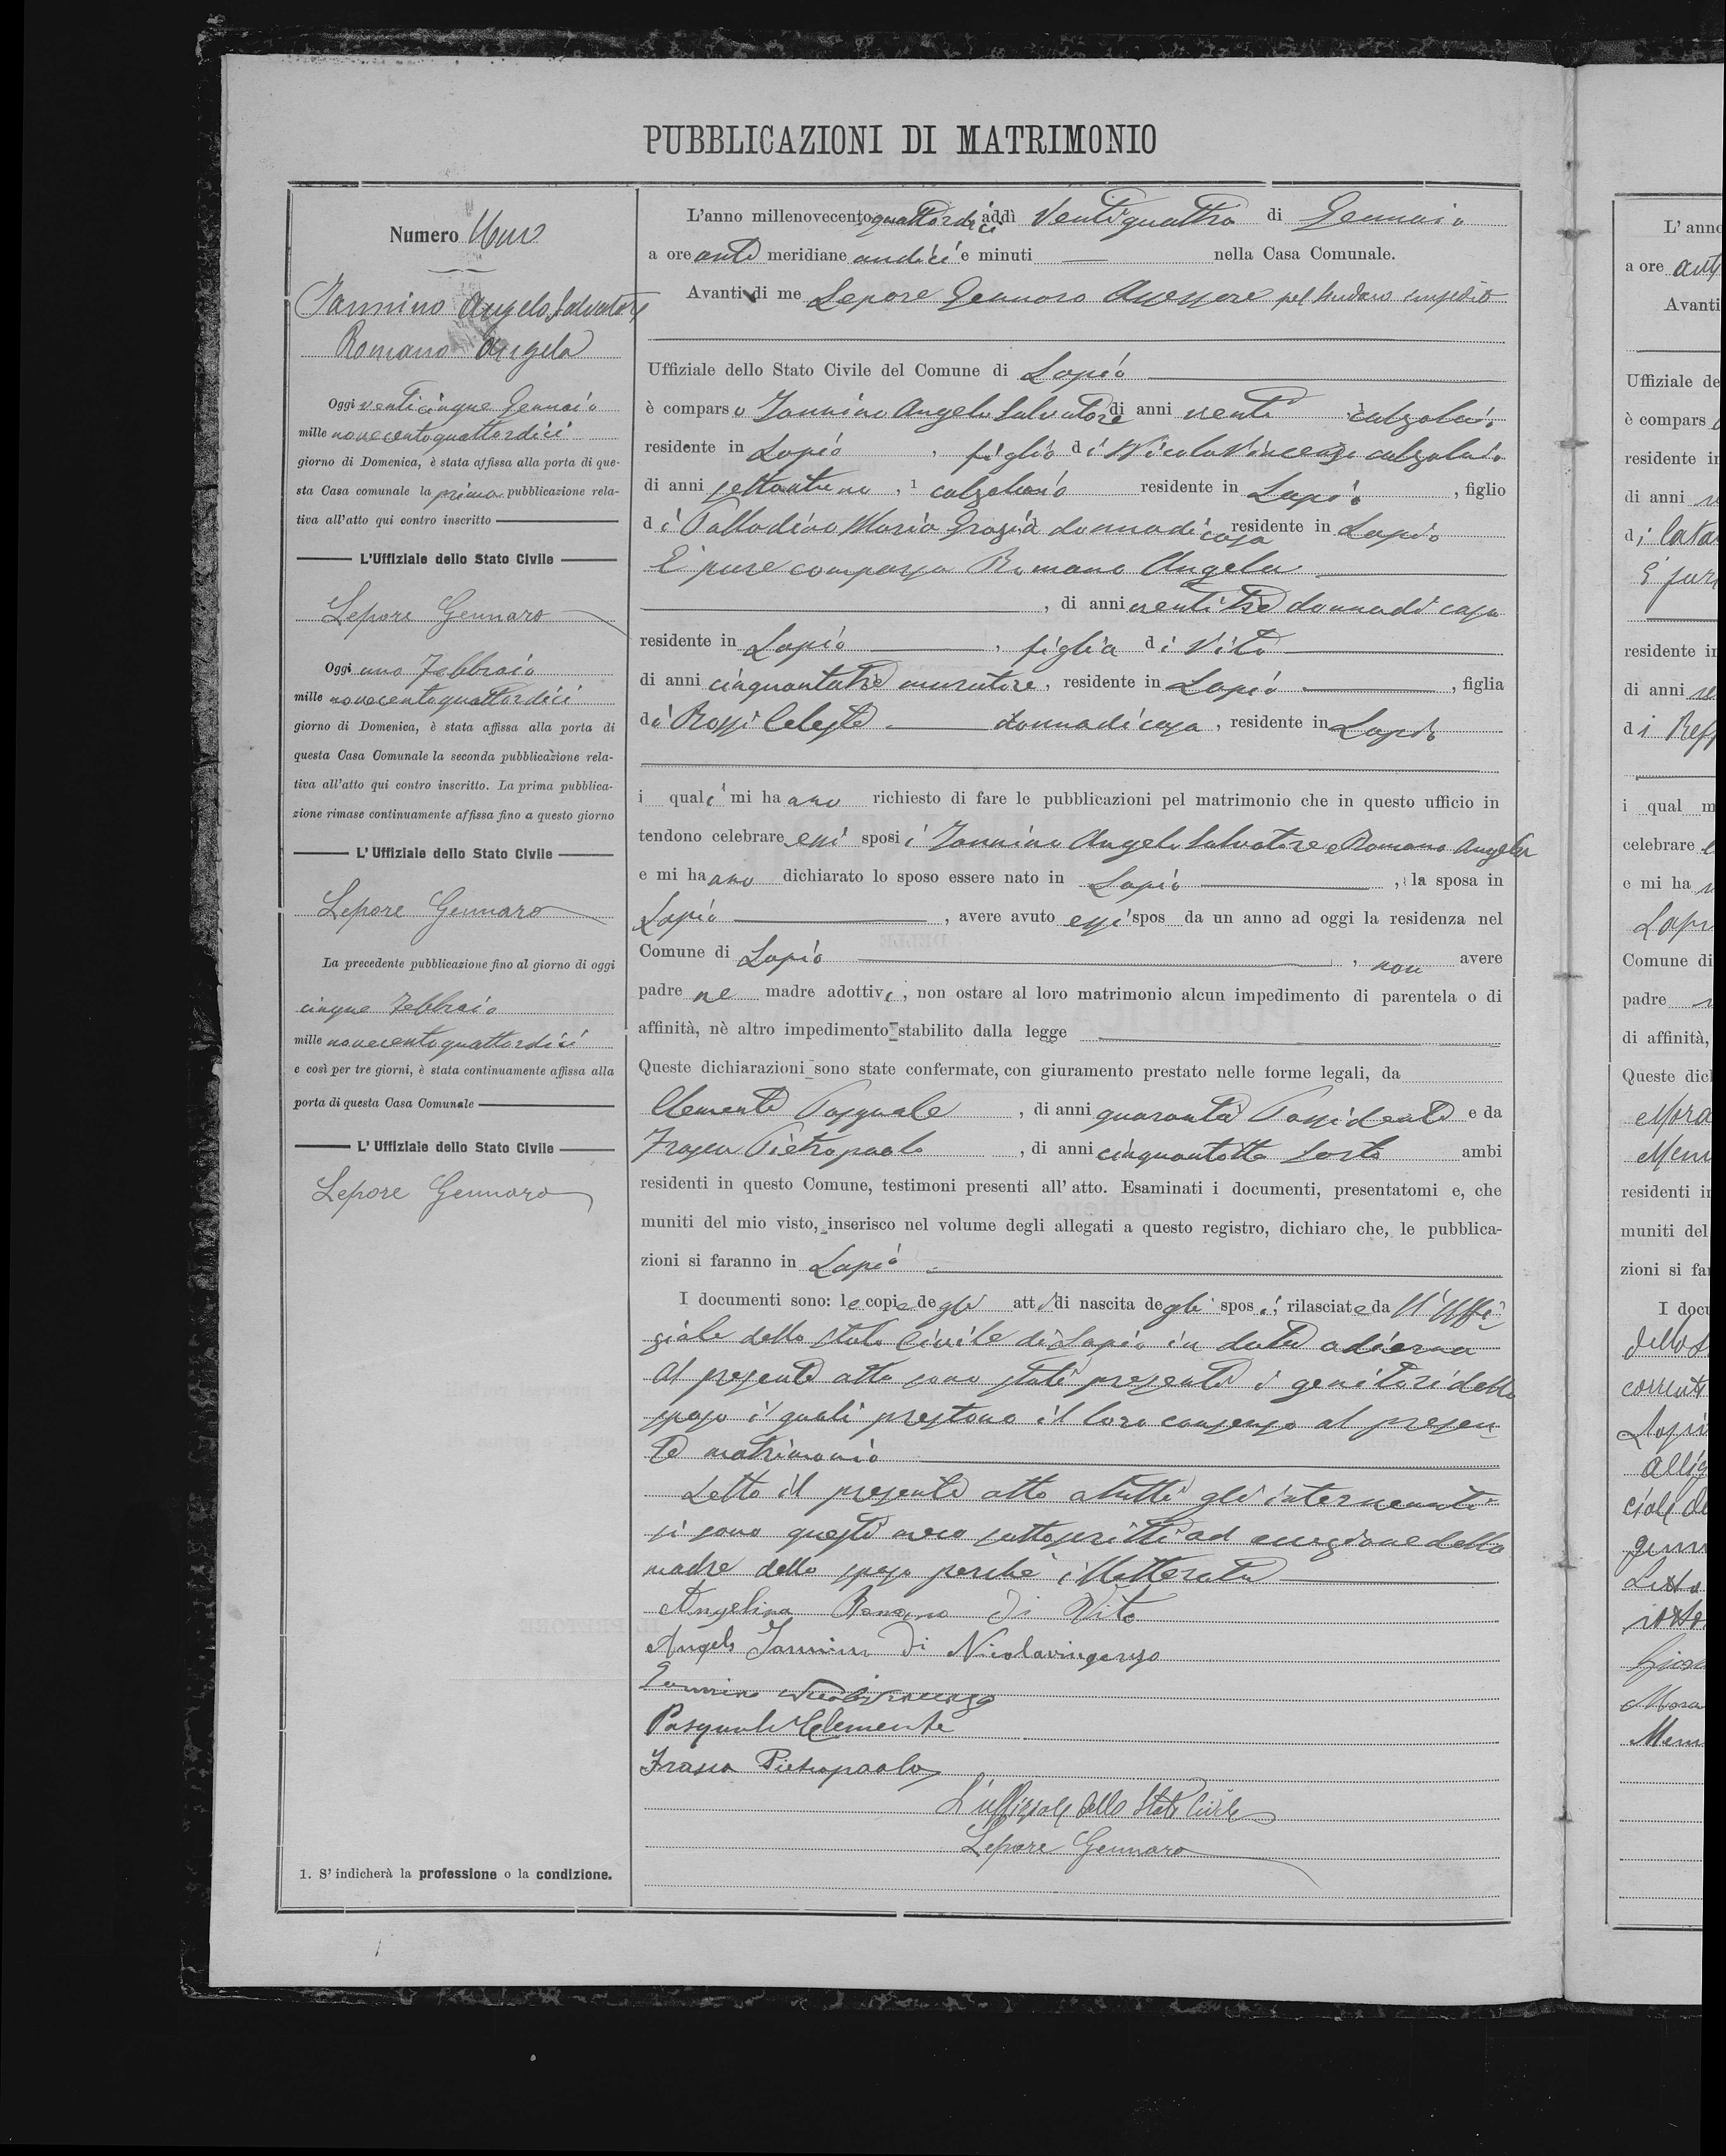 PUBBLICAZIONI DI MATRIMONIO
Numero Uno
Iannino Angelo Salvatore
Romano Angela
Oggi venticinque Gennaio
mille novecentoquattordici
giorno di Domenica, è stata affissa alla porta di que-
sta Casa comunale la prima pubblicazione rela-
tiva all'atto qui contro inscritto
L'Uffiziale dello Stato Civile
Lepore Gennaro
Oggi uno Febbraio
mille novecentoquattordici
giorno di Domenica, è stata affissa alla porta di
questa Casa Comunale la seconda pubblicazione rela-
tiva all'atto qui contro inscritto. La prima pubblica-
zione rimase continuamente affissa fino a questo giorno
L'Uffiziale dello Stato Civile
Lepore Gennaro
La precedente pubblicazione fino al giorno di oggi
cinque Febbraio
mille novecentoquattordici
e così per tre giorni, è stata continuamente affissa alla
porta di questa Casa Comunale
L'Uffiziale dello Stato Civile
Lepore Gennaro
1. S'indicherà la professione o la condizione.
L'anno millenovecentoquattordici addì Ventiquattro di Gennaio
a ore anti meridiane undici e minuti — nella Casa Comunale.
Avanti di me Lepore Gennaro Assessore pel Sindaco impedito
Uffiziale dello Stato Civile del Comune di Lapio
è comparso Iannino Angelo Salvatore di anni venti, 1 calzolaio
residente in Lapio, figlio di Nicola Vincenzo calzolaio
di anni settantuno, 1 calzolaio residente in Lapio, figlio
di Palladino Maria Grazia donna di casa residente in Lapio
È pure comparsa Romano Angela
, di anni ventitrè donna di casa
residente in Lapio, figlia di Vito
di anni cinquantatrè muratore, residente in Lapio, figlia
di Rossi Celeste donna di casa, residente in Lapio
i quali mi hanno richiesto di fare le pubblicazioni pel matrimonio che in questo ufficio in
tendono celebrare essi sposi i Iannino Angelo Salvatore e Romano Angela
e mi hanno dichiarato lo sposo essere nato in Lapio, la sposa in
Lapio, avere avuto essi spos da un anno ad oggi la residenza nel
Comune di Lapio, non avere
padre ne madre adottivi, non ostare al loro matrimonio alcun impedimento di parentela o di
affinità, nè altro impedimento stabilito dalla legge
Queste dichiarazioni sono state confermate, con giuramento prestato nelle forme legali, da
Clemente Pasquale, di anni quaranta Possidente e da
Frasca Pietropaolo, di anni cinquantotto Sarto ambi
residenti in questo Comune, testimoni presenti all'atto. Esaminati i documenti, presentatomi e, che
muniti del mio visto, inserisco nel volume degli allegati a questo registro, dichiaro che, le pubblica-
zioni si faranno in Lapio
I documenti sono: le copie degli atti di nascita degli sposi, rilasciate da ll'Uffi-
ziale dello Stato Civile di Lapio in data odierna
Al presente atto sono stati presenti i genitori dello
sposo i quali prestano il loro consenso al presen-
te matrimonio
Letto il presente atto a tutti gli intervenuti
si sono questi meco sottoscritti ad eccezione della
madre dello sposo perchè illetterata
Angelina Romano di Vito
Angelo Iannino di Nicolavingenzo
Iannino Nicolavincenzo
Pasquale Clemente
Frasca Pietropaolo
L'uffiziale dello Stato Civile
Lepore Gennaro
L'anno
a ore
Avanti
Uffiziale de
è compars
residente in
di anni
di Cata
È pure
residente in
di anni
di
i qual m
celebrare
e mi ha
Lapi
Comune di
padre
di affinità,
Queste dich
residenti in
muniti del
zioni si far
I docu